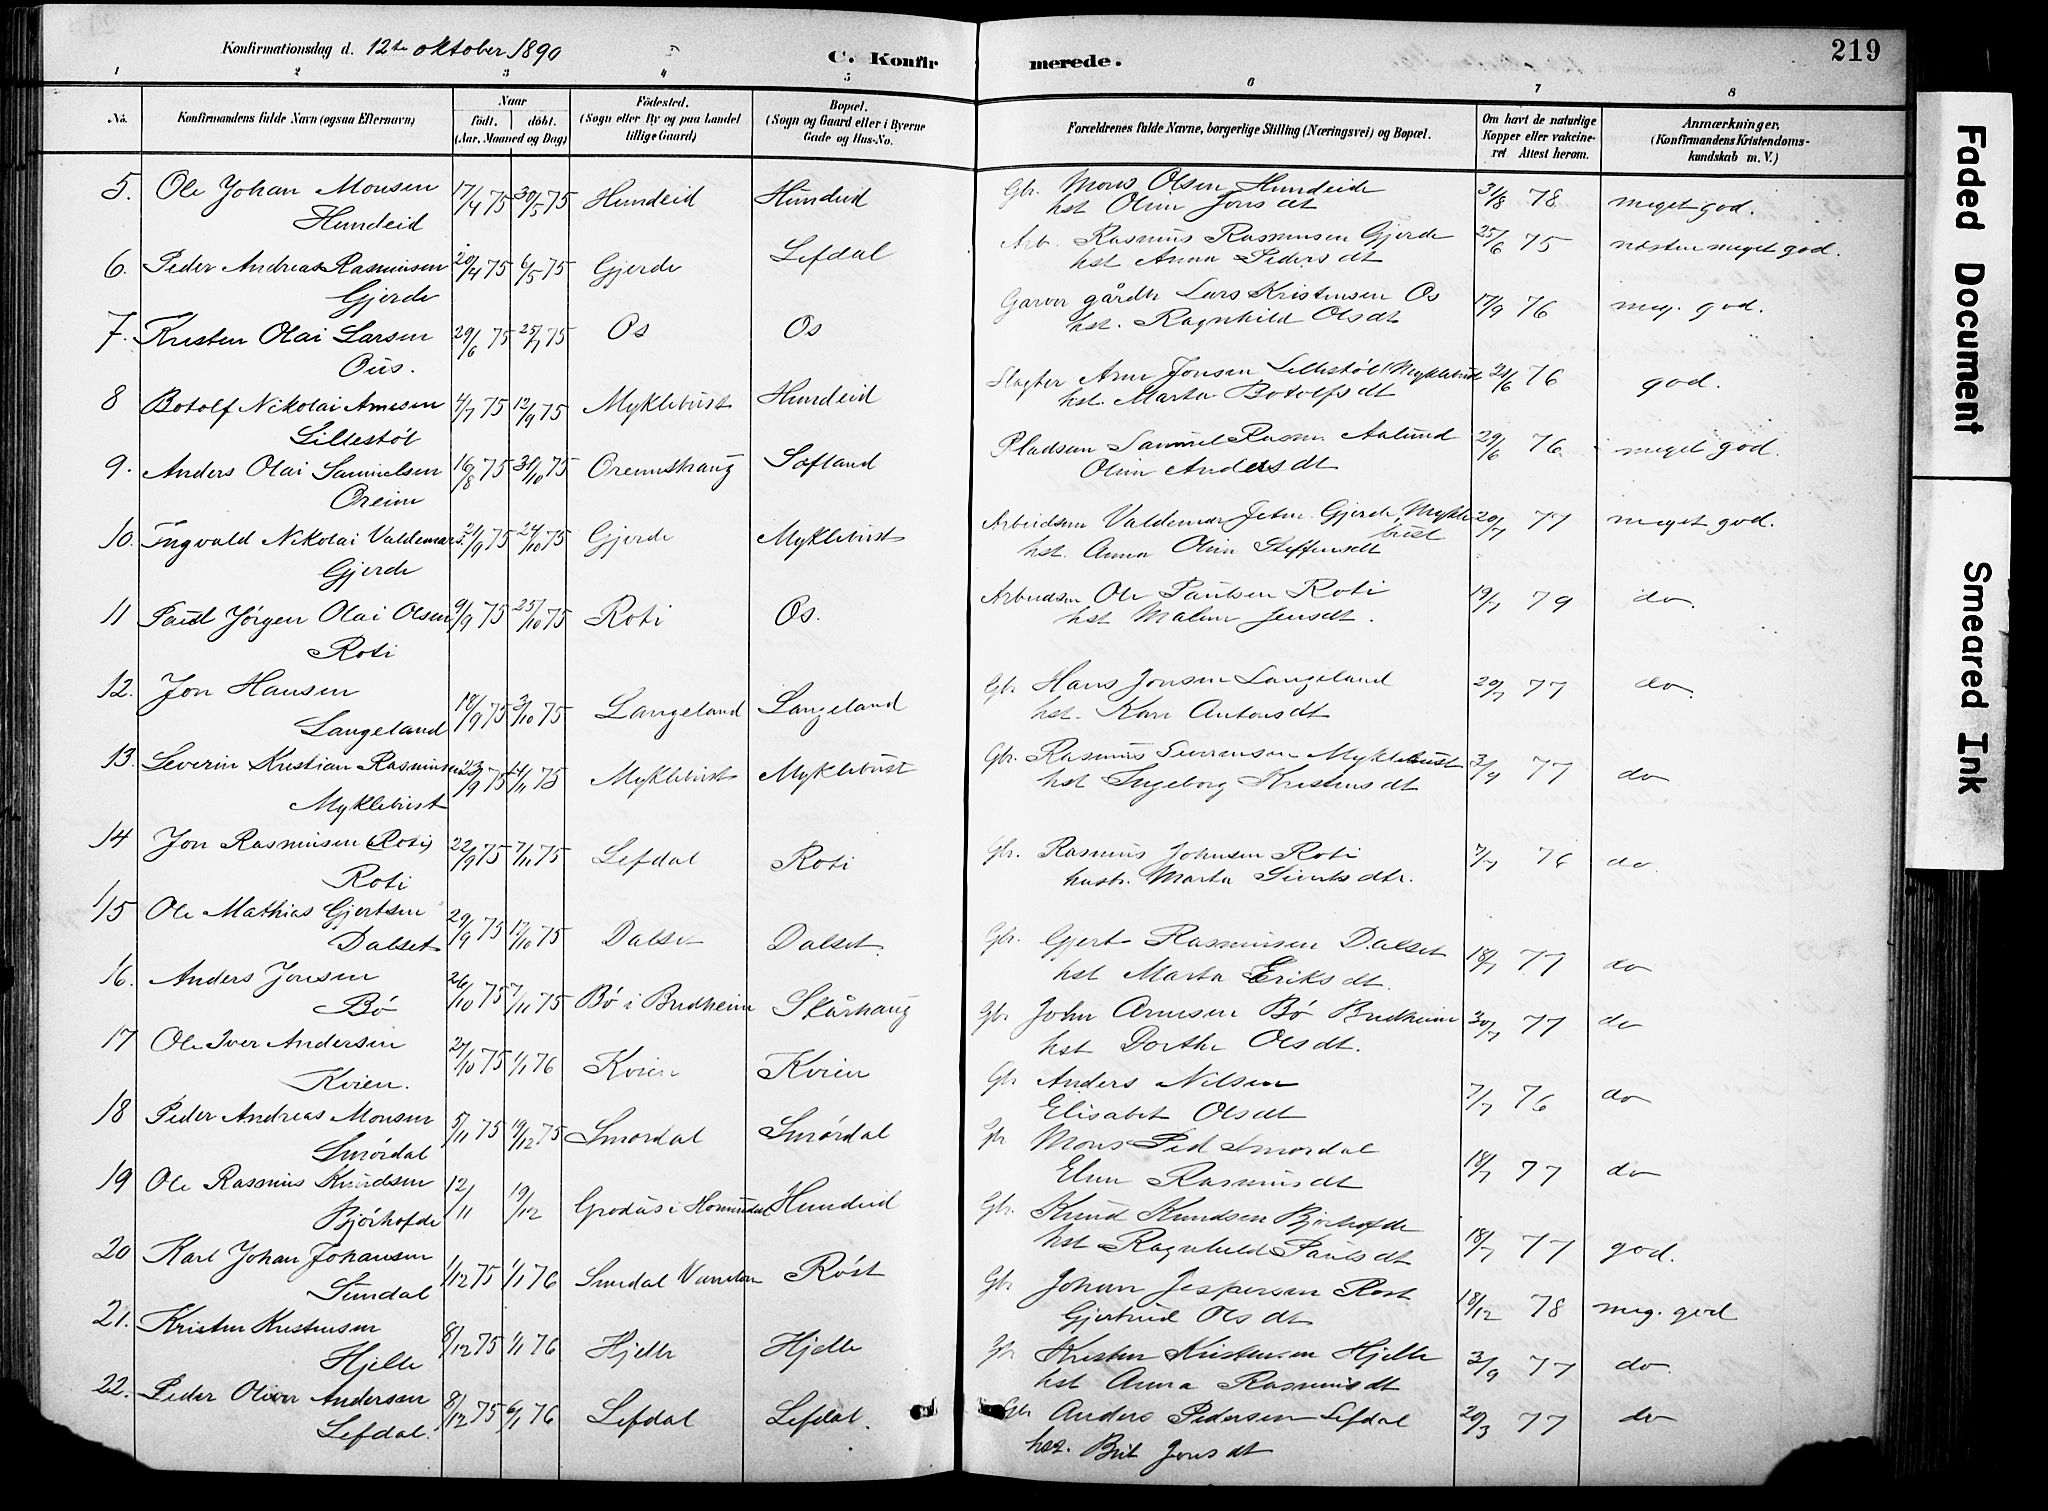 Konfirmationsdag d. 12te oktober 1890
C. Konfirmerede.
219
1 2 3 4 5 6 7 8
No.
Konfirmandens fulde Navn (ogsaa Efternavn)
Naar
født. døbt.
(Aar, Maaned og Dag)
Födested.
(Sogn eller By og paa Landet
tillige Gaard)
Bopæl.
(Sogn og Gaard eller i Byerne
Gade og Hus-No.
Forældrenes fulde Navne, borgerlige Stilling (Næringsvei) og Bopæl.
Om havt de naturlige
Kopper eller vakcine-
ret Attest herom.
Anmærkninger.
(Konfirmandens Kristendoms-
kundskab m. V.)
5. Ole Johan Monsen 17/4 75 30/5 75 Hundeid Hundeid Gbr. Mons Olsen Hundeide 3/8 78 meget god.
Hundeid hst Oline Jonsdt
6. Peder Andreas Rasmusen 20/4 75 6/5 75 Gjerde Lefdal Arb. Rasmus Rasmusen Gjerde 25/6 75 næsten meget god.
Gjerde hst Anna Pedersdt
7. Kristen Olai Larsen 29/6 75 25/7 75 Os Os Garver gårdbr Lars Kristensen Os 17/9 76 meg. god.
Ous. hst. Ragnhild Olsdt
8 Botolf Nikolai Arnesen 4/7 75 12/9 75 Myklebust Hundeid Slagter Arne Jonsen Lillestøl Myklebust 21/6 76 god.
Lillestøl hst. Marta Botolfsdt
9. Anders Olai Samuelsen 16/8 75 31/10 75 Oreimshaug Sæfland Pladsm Samuel Rasm. Aalund 29/6 76. meget god.
Oreim Oline Andersdt
10. Ingvald Nikolai Valdemars 21/9 75 24/10 75 Gjerde Myklebust Arbeidsm Valdemar Jetm. Gjerde, Mykle 20/7 77 meget god.
bust
Gjerde hst. Anna Oline Steffensdt
11 Paul Jørgen Olai Olsen 9/9 75 25/10 75 Roti Os. Arbeidsm Ole Paulsen Roti 19/7 79 do.
Roti hst Maline Jensdt.
12. Jon Hansen 18/9 75 3/10 75 Langeland Langeland Gbr Hans Jonsen Langeland 20/7 77 do.
Langeland hst. Kari Antonsdt
13. Severin Kristian Rasmusen 23/9 75 14/11 75 Myklebust Myklebust Gbr. Rasmus Severensen Myklebust 3/9 77 do
Myklebust hst Ingeborg Kristensdt
14 Jon Rasmusen (Roti) 22/9 75 7/11 75 Lefdal Roti Gbr. Rasmus Johnsen Roti 7/7 76 do.
Roti hustr. Marta Sivertsdtr.
15 Ole Mathias Gjertsen 29/9 75 17/10 75 Dalset Dalset. Gbr. Gjert Rasmusen Dalset 18/7 77 do
Dalset hst Marta Eriksdt.
16. Anders Jonsen 26/10 75 7/11 75 Bø i Bredheim Skårhaug Gbr. John Arnesen Bø Bredheim 30/7 77 do
Bø hst Dorthe Olsdt.
17 Ole Iver Andersen 27/10 75 1/1 76 Kvien Kvien Gbr Anders Nilsen 7/7 76 do
Kvien. Elisabet Olsdt
18 Peder Andreas Monsen 5/11 75 19/12 75 Smørdal Smørdal Gbr Mons Ped Smørdal 18/7 77 do
Smørdal Eline Rasmusdt
19 Ole Rasmus Knudsen 12/11 19/12 Grodås i Hornindal Hundeid Gbr. Knud Knudsen Bjørhofde 18/7 77 god.
Bjørhofde hst Ragnhild Paulsdt
20 Karl Johan Johansen 1/12 75 1/1 76 Sundal Røst Gbr Johan Jespersen Røst 18/12 78 meg. god
Sundal Gjertrud Olsdt
21. Kristen Kristensen 8/12 75 1/1 76 Hjelle Hjelle Gbr Kristen Kristensen Hjelle 3/9 77 do.
Hjelle hst Anna Rasmusdt
22. Peder Oliver Andersen 8/12 75 6/1 76 Lefdal Lefdal. Gbr Anders Pedersen Lefdal 20/3 77 do
Lefdal. hst. Brit Jonsdt
Faded Document
Smeared Ink